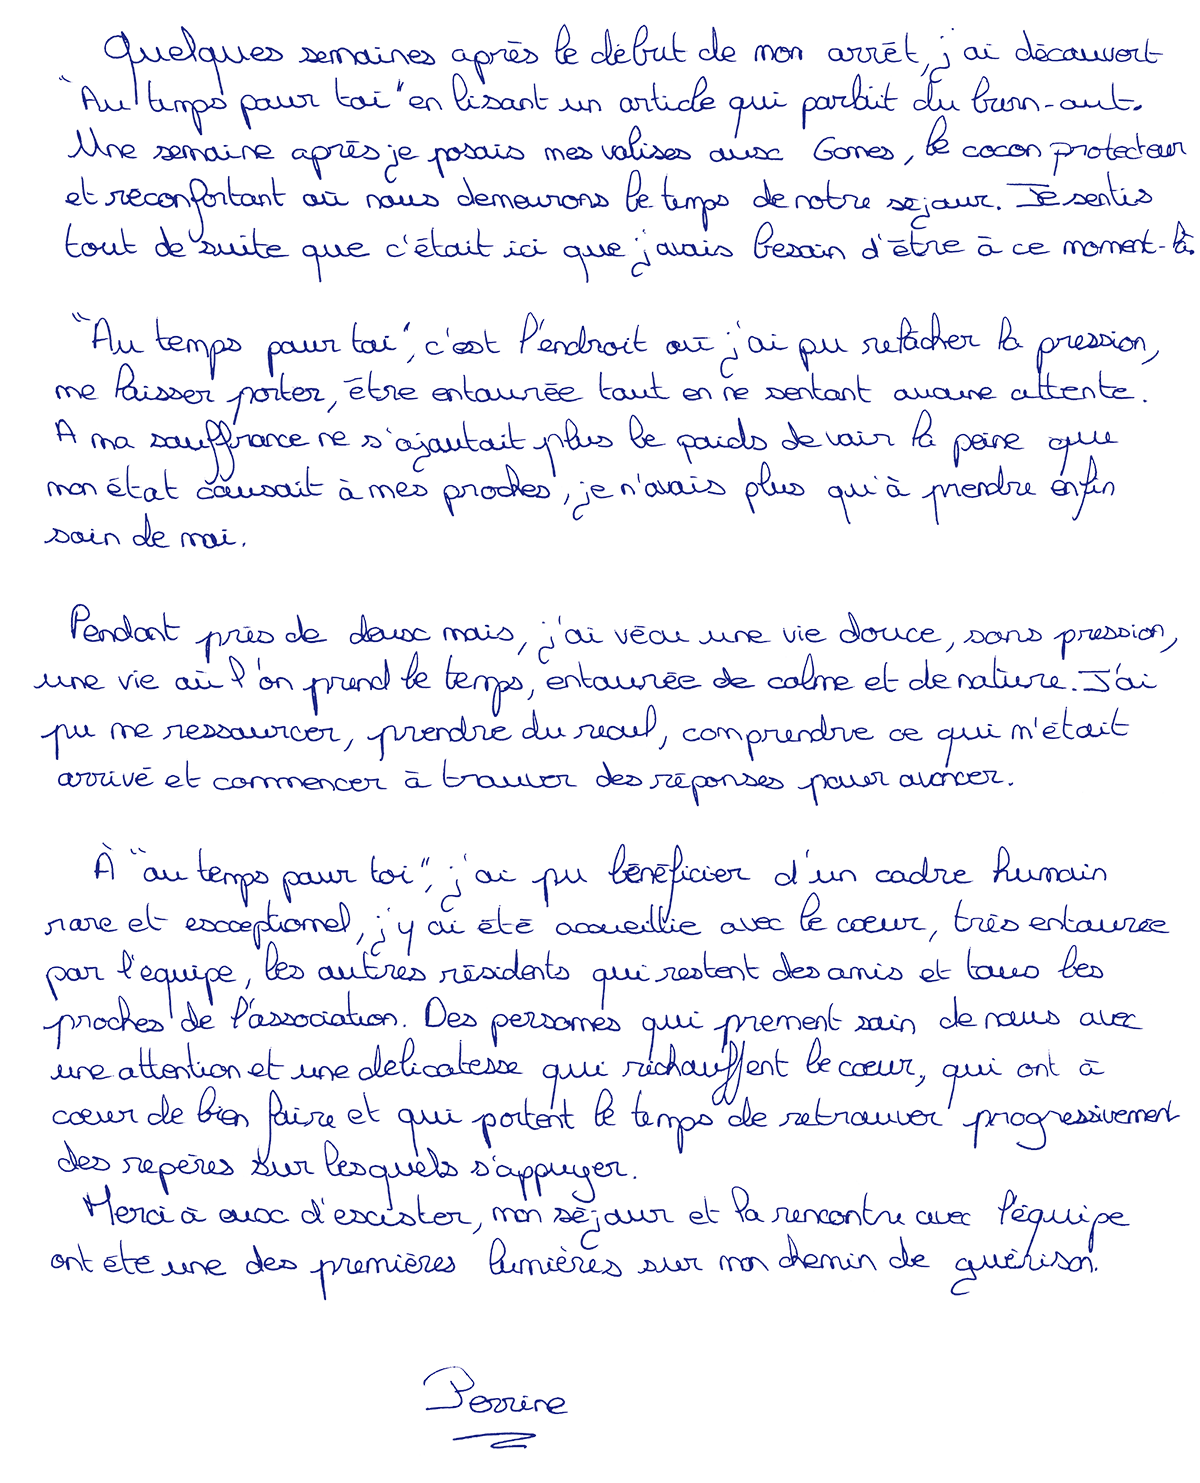 Quelques semaines après le début de mon arrêt, j'ai découvert
"Au temps pour toi" en lisant un article qui parlait du burn-out.
Une semaine après je posais mes valises aux Gones, le cocon protecteur
et réconfortant où nous demeurons le temps de notre séjour. Je sentis
tout de suite que c'était ici que j'avais besoin d'être à ce moment-là.
"Au temps pour toi", c'est l'endroit où j'ai pu relâcher la pression,
me laisser porter, être entourée tout en ne sentant aucune attente.
A ma souffrance ne s'ajoutait plus le poids de voir la peine que
mon état causait à mes proches, je n'avais plus qu'à prendre enfin
soin de moi.
Pendant près de deux mois, j'ai vécu une vie douce, sans pression,
une vie où l'on prend le temps, entourée de calme et de nature. J'ai
pu me ressourcer, prendre du recul, comprendre ce qui m'était
arrivé et commencer à trouver des réponses pour avancer.
À "au temps pour toi", j'ai pu bénéficier d'un cadre humain
rare et exceptionnel, j'y ai été accueillie avec le cœur, très entourée
par l'équipe, les autres résidents qui restent des amis et tous les
proches de l'association. Des personnes qui prennent soin de nous avec
une attention et une délicatesse qui réchauffent le cœur, qui ont à
cœur de bien faire et qui portent le temps de retrouver progressivement
des repères sur lesquels s'appuyer.
Merci à eux d'exister, mon séjour et la rencontre avec l'équipe
ont été une des premières lumières sur mon chemin de guérison.
Perrine